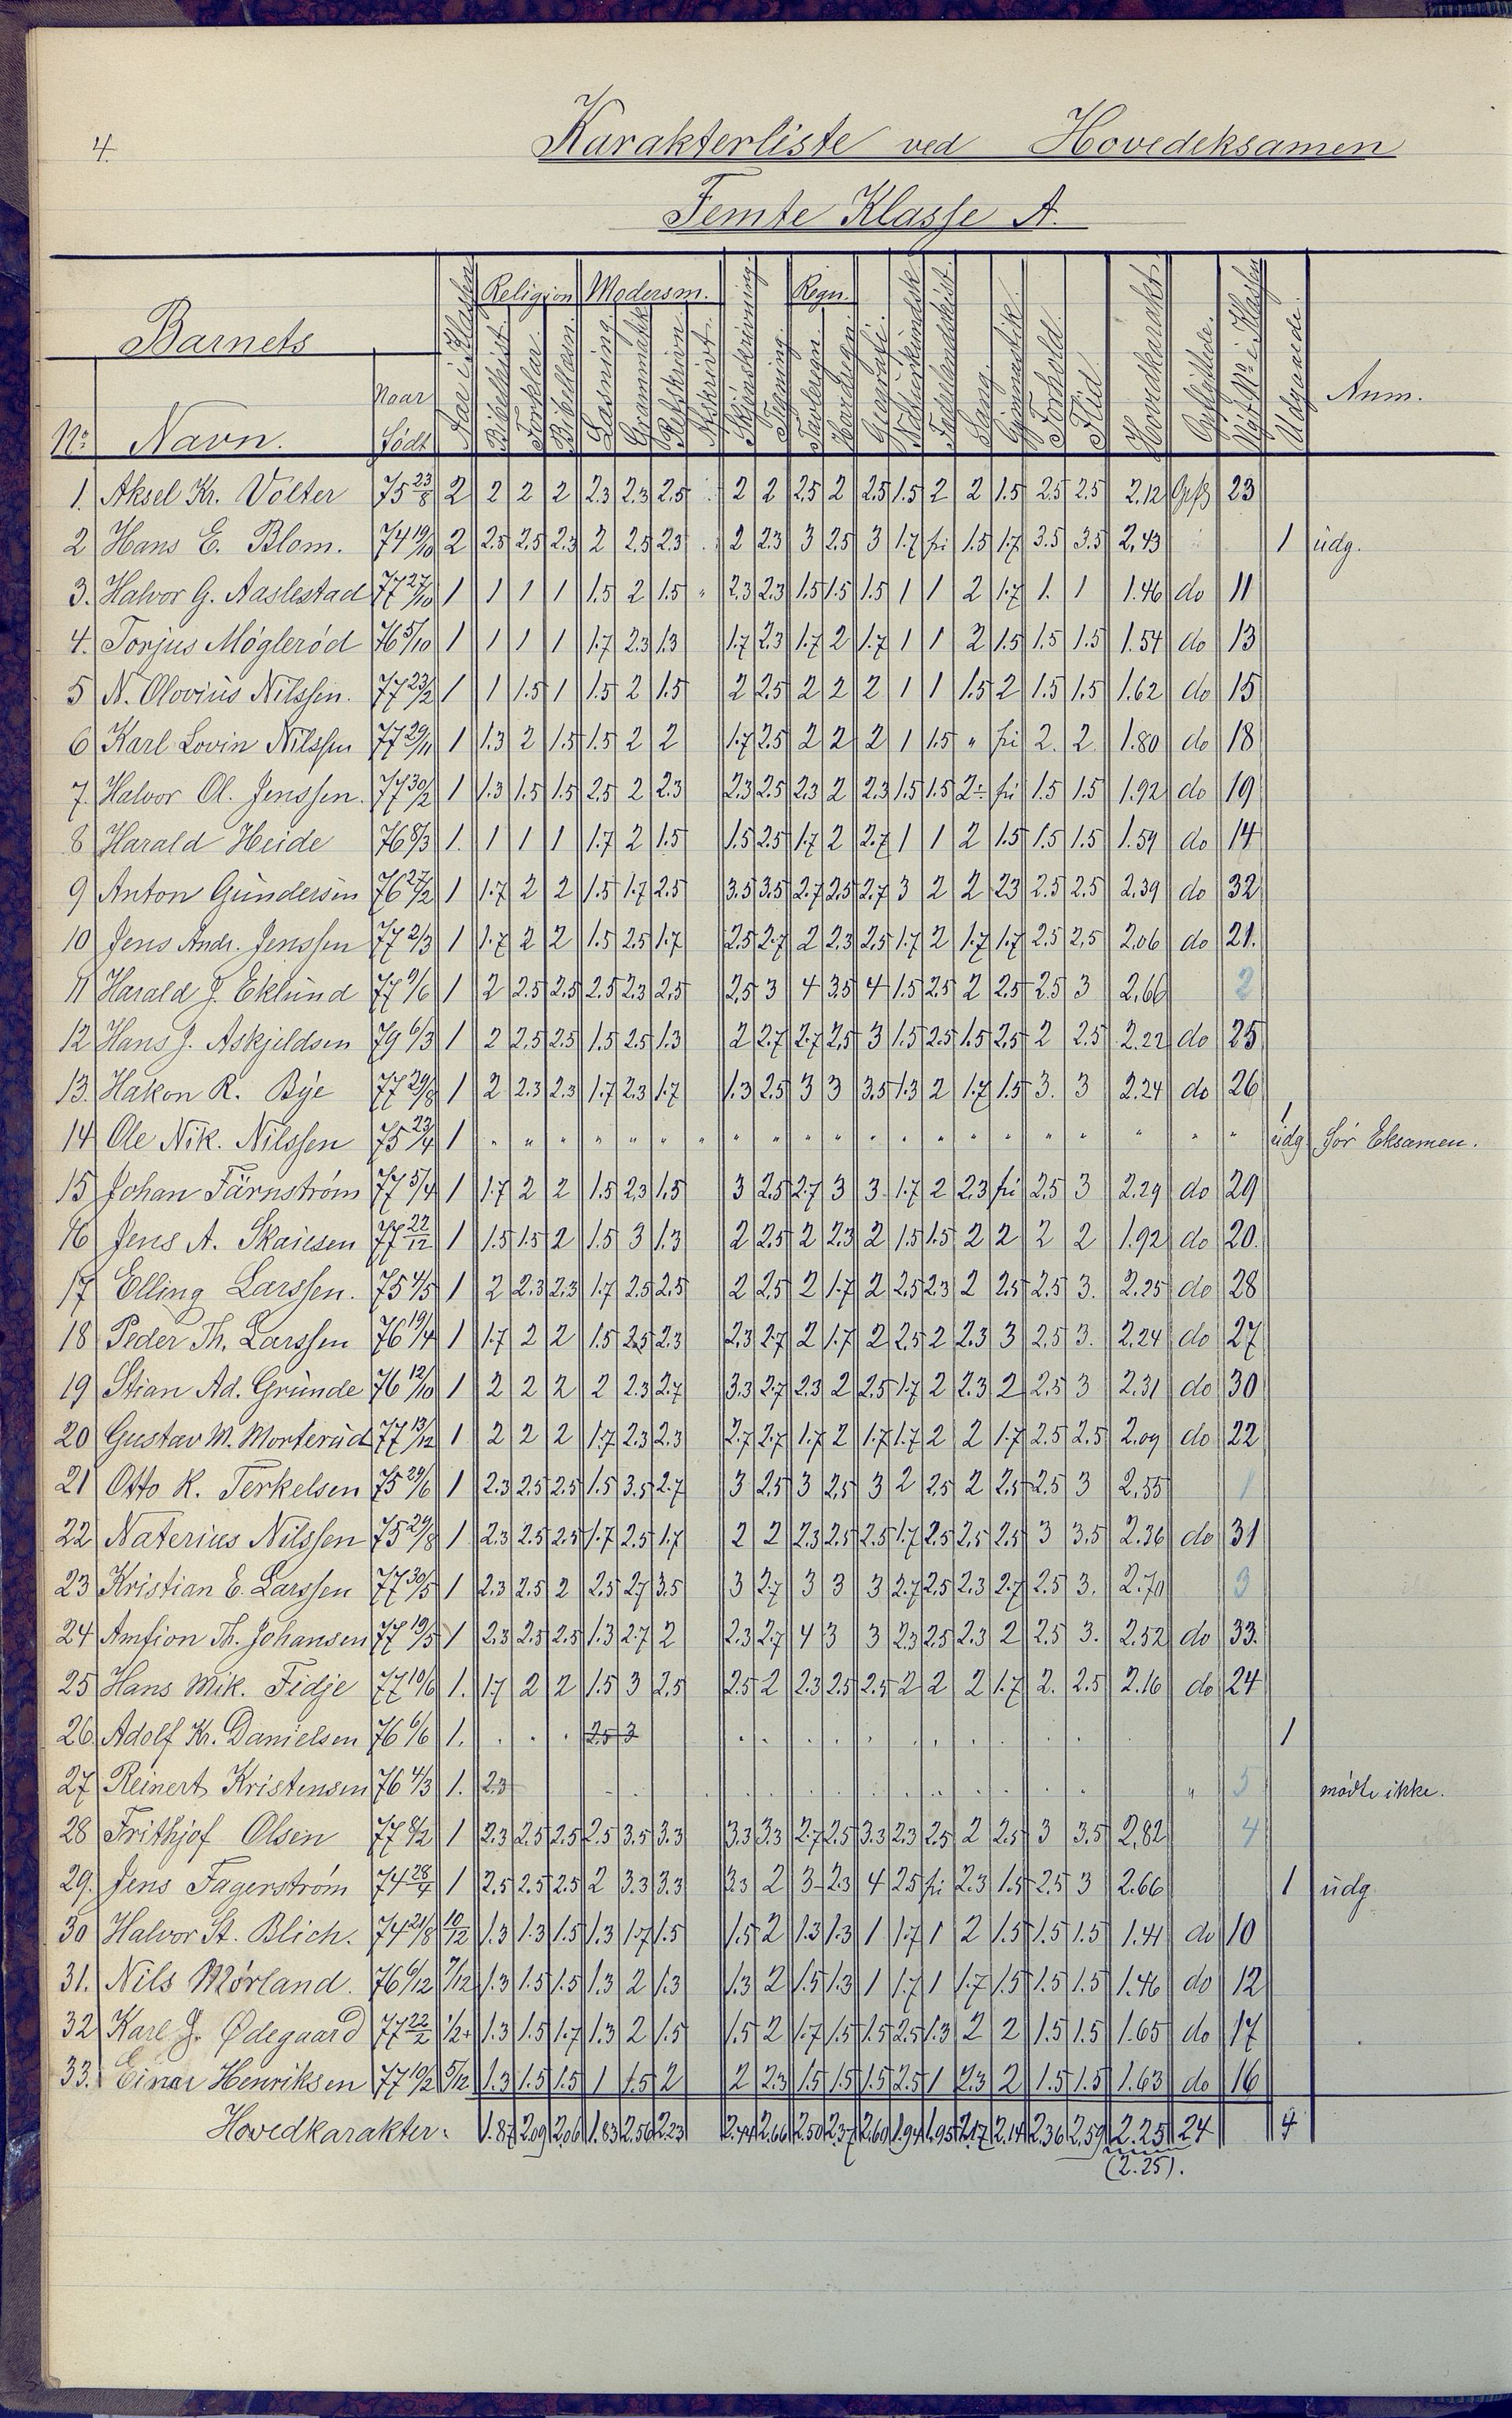 4.
Karakterliste ved Hovedeksamen
Femte Klasse A.
Barnets Aar i Klassen Religion Modersm. Skjønskrivning. Tegning. Regn. Geografi. Naturkundsk. Fædrelandshist. Sang. Gymnastik. Forhold. Flid. Hovedkarakt. Opflyttede. i Klassen Udgaaede. Anm.
Bibelhist. Forklar. Bibellæsn. Læsning. Grammatik Retskrivn. Afskrivt. Tavleregn. Hovedregn.
No Navn. Naar Født
1. Aksel Kr. Volter 75 23/8 2 2 2 2 2.3 2.3 2.5 . 2 2 2.5 2 2.5 1.5 2 2 1.5 2.5 2.5 2.12 Opfl 23
2 Hans E. Blom. 74 19/10 2 2.5 2.5 2.3 2 2.5 2.3 . 2 2.3 3 2.5 3 1.7 fri 1.5 1.7 3.5 3.5 2.43 1 udg.
3. Halvor G. Aaslestad 77 27/10 1 1 1 1 1.5 2 1.5 " 2.3 2.3 1.5 1.5 1.5 1 1 2 1.7 1. 1 1.46 do 11
4. Torjus Møglerød 76 5/10 1 1 1 1 1.7 2.3 1.3 1.7 2.3 1.7 2 1.7 1 1 2 1.5 1.5 1.5 1.54 do 13
5 N. Olovius Nilssen. 77 23/2 1 1 1.5 1 1.5 2 1.5 2 2.5 2 2 2 1 1 1.5 2 1.5 1.5 1.62 do 15
6 Karl Lovin Nilssen 77 29/11 1 1.3 2 1.5 1.5 2 2 1.7 2.5 2 2 2 1 1.5 " fri 2. 2. 1.80 do 18
7. Halvor Ol. Jenssen. 77 30/2 1 1.3 1.5 1.5 2.5 2 2.3 2.3 2.5 2.3 2 2.3 1.5 1.5 2÷ fri 1.5 1.5 1.92 do 19
8 Harald Heide 76 8/3 1. 1 1 1 1.7 2 1.5 1.5 2.5 1.7 2 2.7 1 1 2 1.5 1.5 1.5 1.59 do 14
9 Anton Gundersen 76 27/2 1 1.7 2 2 1.5 1.7 2.5 3.5 3.5 2.7 2.5 2.7 3 2 2 2.3 2.5 2.5 2.39 do 32
10 Jens Andr. Jenssen 77 2/3 1 1.7 2 2 1.5 2.5 1.7 2.5 2.7 2 2.3 2.5 1.7 2 1.7 1.7 2.5 2.5 2.06 do 21.
11 Harald J. Eklund 77 9/6 1 2 2.5 2.5 2.5 2.3 2.5 2.5 3 4 3.5 4 1.5 2.5 2 2.5 2.5 3 2.66 2
12 Hans J. Askjeldsen 79 6/3 1 2 2.5 2.5 1.5 2.5 1.3 2 2.7 2.7 2.5 3 1.5 2.5 1.5 2.5 2 2.5 2.22 do 25
13. Hakon R. Bye 77 29/8 1 2 2.3 2.3 1.7 2.3 1.7 1.3 2.5 3 3 3.5 1.3 2 1.7 1.5 3. 3 2.24 do 26
14 Ole Nik. Nilssen 75 23/4 1 " " " " " " " " " " " " " " " " " " " " " 1 udg. før Eksamen.
15 Johan Färnstrøm 77 5/4 1 1.7 2 2 1.5 2.3 1.5 3 2.5 2.7 3 3. 1.7 2 2.3 fri 2.5 3 2.29 do 29
16 Jens A. Skaiesen 77 22/12 1 1.5 1.5 2 1.5 3 1.3 2 2.5 2 2.3 2 1.5 1.5 2 2 2 2 1.92 do 20.
17 Elling Larssen. 75 4/5 1 2 2.3 2.3 1.7 2.5 2.5 2 2.5 2 1.7 2 2.5 2.3 2 2.5 2.5 3. 2.25 do 28
18 Peder Th. Larssen 76 19/4 1 1.7 2 2 1.5 2.5 2.3 2.3 2.7 2 1.7 2 2.5 2 2.3 3 2.5 3. 2.24 do 27
19 Stian Ad. Grunde 76 12/10 1 2 2 2 2 2.3 2.7 3.3 2.7 2.3 2 2.5 1.7 2 2.3 2 2.5 3 2.31 do 30
20 Gustav M. Morterud 77 13/12 1 2 2 2 1.7 2.3 2.3 2.7 2.7 1.7 2 1.7 1.7 2 2 1.7 2.5 2.5 2.09 do 22
21 Otto K. Terkelsen 75 29/6 1 2.3 2.5 2.5 1.5 3.5 2.7 3 2.5 3 2.5 3 2 2.5 2 2.5 2.5 3 2.55 1
22 Naterius Nilssen 75 29/8 1 2.3 2.5 2.5 1.7 2.5 1.7 2 2 2.3 2.5 2.5 1.7 2.5 2.5 2.5 3 3.5 2.36 do 31
23 Kristian E. Larssen 77 30/5 1 2.3 2.5 2 2.5 2.7 3.5 3 2.7 3 3 3 2.7 2.5 2.3 2.7 2.5 3. 2.70 3
24 Amfion Th. Johansen 77 19/5 1 2.3 2.5 2.5 1.3 2.7 2 2.3 2.7 4 3 3 2.3 2.5 2.3 2 2.5 3. 2.52 do 33.
25 Hans Mik. Fidje 77 10/6 1. 1.7 2 2 1.5 3 2.5 2.5 2 2.3 2.5 2.5 2 2 2 1.7 2. 2.5 2.16 do 24
26 Adolf Kr. Danielsen 76 6/6 1. . . . 2.5 3 . . . . . . . . . . . 1
27 Reinert Kristensen 76 4/3 1. 2.3 . . . . . . . . . . . . . " 5 mødte ikke.
28 Frithjof Olsen 77 8/2 1 2.3 2.5 2.5 2.5 3.5 3.3 3.3 3.3 2.7 2.5 3.3 2.3 2.5 2 2.5 3 3.5 2.82 4
29. Jens Fagerstrøm 74 28/4 1 2.5 2.5 2.5 2 3.3 3.3 3.3 2 3 2.3 4 2.5 fri 2.3 1.5 2.5 3 2.66 1 udg.
30 Halvor St. Blich. 74 21/8 10/12 1.3 1.3 1.5 1.3 1.7 1.5 1.5 2 1.3 1.3 1 1.7 1 2 1.5 1.5 1.5 1.41 do 10
31. Nils Mørland. 76 6/12 7/12 1.3 1.5 1.5 1.3 2 1.3 1.3 2 1.5 1.3 1 1.7 1 1.7 1.5 1.5 1.5 1.46 do 12
32 Karl J. Ødegaard 77 22/2 1/2+ 1.3 1.5 1.7 1.3 2 1.5 1.5 2 1.7 1.5 1.5 2.5 1.3 2 2 1.5 1.5 1.65 do 17
33. Einar Henriksen 77 10/2 5/12 1.3 1.5 1.5 1 1.5 2 2 2.3 1.5 1.5 1.5 2.5 1 2.3 2 1.5 1.5 1.63 do 16
Hovedkarakter. 1.87 2.09 2.06 1.83 2.56 2.23 2.44 2.66 2.50 2.37 2.60 1.94 1.95 2.17 2.14 2.36 2.59 2.25 24 4
(2.25).